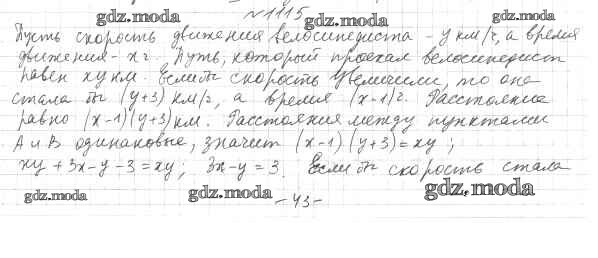 gdz.moda №1115 gdz.moda gdz.moda
Пусть скорость движения велосипедиста - y км/ч, а время
движения - x ч. Путь, который проехал велосипедист
равен xy км. Если бы скорость увеличили, то она
стала бы (y+3) км/ч, а время (x-1) ч. Расстояние
равно (x-1)(y+3) км. Расстояния между пунктами
А и В одинаковые, значит (x-1)(y+3)=xy;
xy+3x-y-3=xy; 3x-y=3. Если бы скорость стала
gdz.moda gdz.moda gdz.moda
-43-